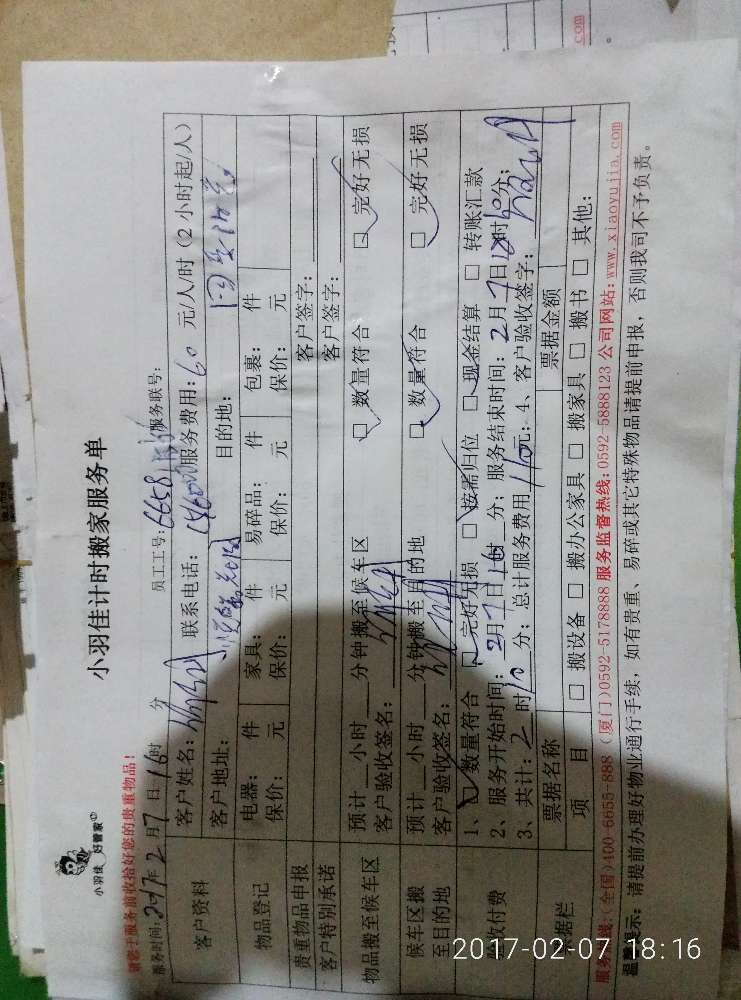 小羽佳 好管家
小羽佳计时搬家服务单
请您于服务前收拾好您的贵重物品!
服务时间: 2017年 2月 7日 16时 分 员工工号: 服务联号:
客户资料 客户姓名: 联系电话: 服务费用: 60 元/人/时 (2小时起/人)
客户地址: 目的地:
物品登记 电器: 件 家具: 件 易碎品: 件 包裹: 件
保价: 元 保价: 元 保价: 元 保价: 元
贵重物品申报 客户签字:
客户特别承诺 客户签字:
物品搬至候车区 预计 小时 分钟搬至候车区 □ 数量符合 □ 完好无损
客户验收签名:
候车区搬至目的地 预计 小时 分钟搬至目的地 □ 数量符合 □ 完好无损
客户验收签名:
验收付费 1、□ 数量符合 □ 完好无损 □ 按需归位 □ 现金结算 □ 转账汇款
2、服务开始时间: 2月 7日 16时 分; 服务结束时间: 2月 7日 时 分;
3、共计: 2时 10分; 总计服务费用 元; 4、客户验收签字:
票据栏 票据名称 票据金额
项 目 □ 搬设备 □ 搬办公家具 □ 搬家具 □ 搬书 □ 其他:
服务热线:(全国)400-6655-888 (厦门)0592-5178888 服务监督热线:0592-5888123 公司网站:www.xiaoyujia.com
温馨提示: 请提前办理好物业通行手续, 如有贵重、易碎或其它特殊物品请提前申报, 否则我司不予负责。
2017-02-07 18:16